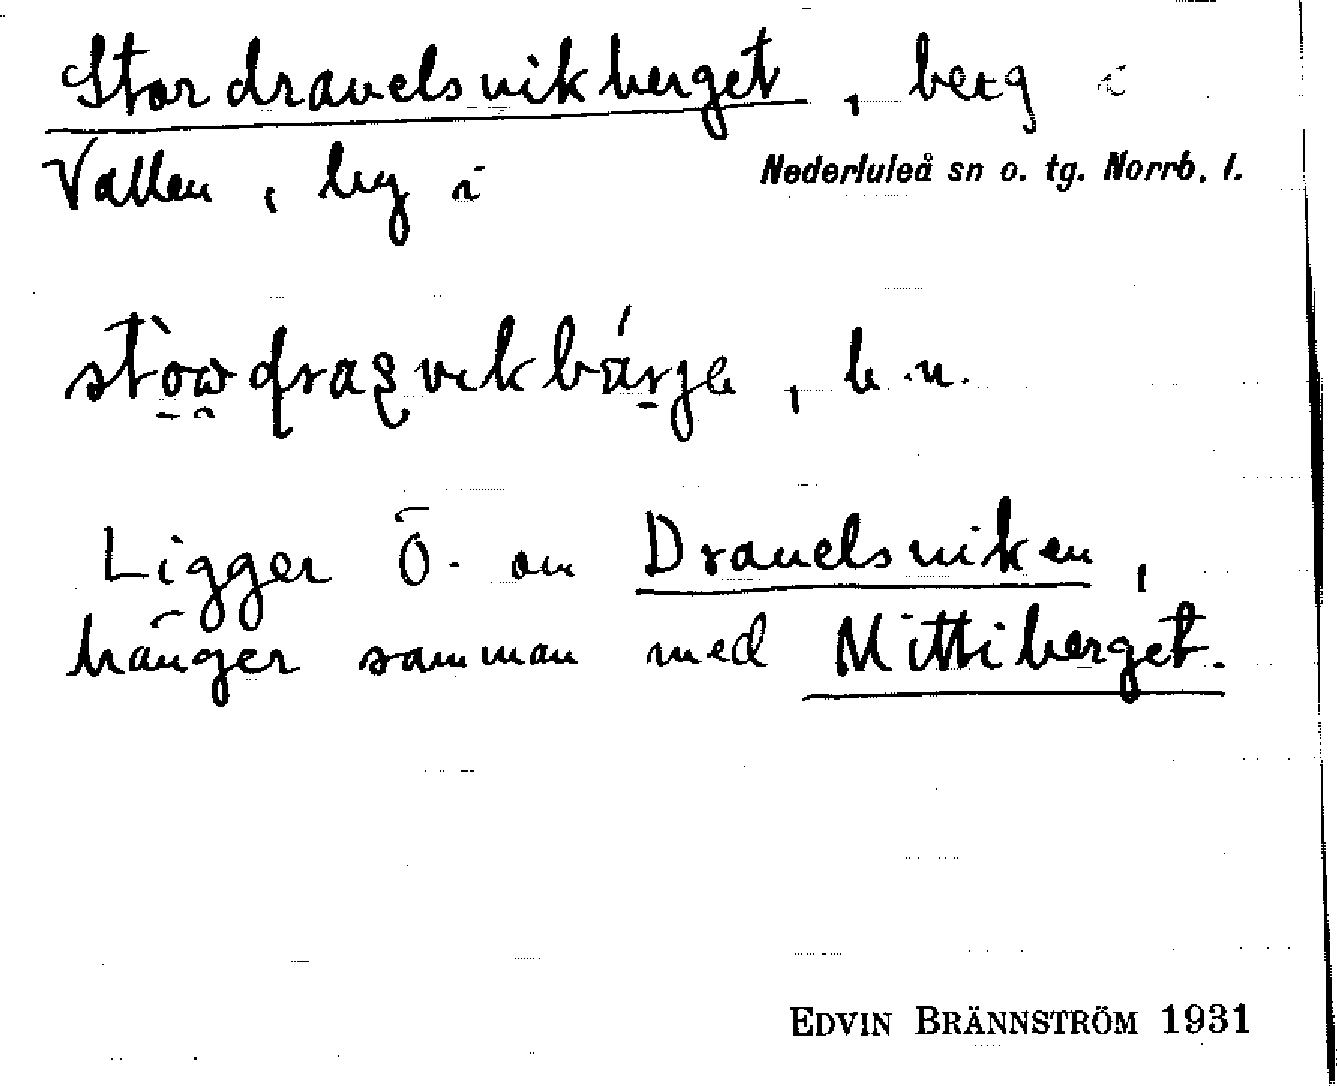 Stordravelsvikberget, berg i
Vallen, by i Nederluleå sn o. tg. Norrb. l.
, b.n.
Ligger Ö. om Dravelsviken,
hänger samman med Mittiberget.
EDVIN BRÄNNSTRÖM 1931